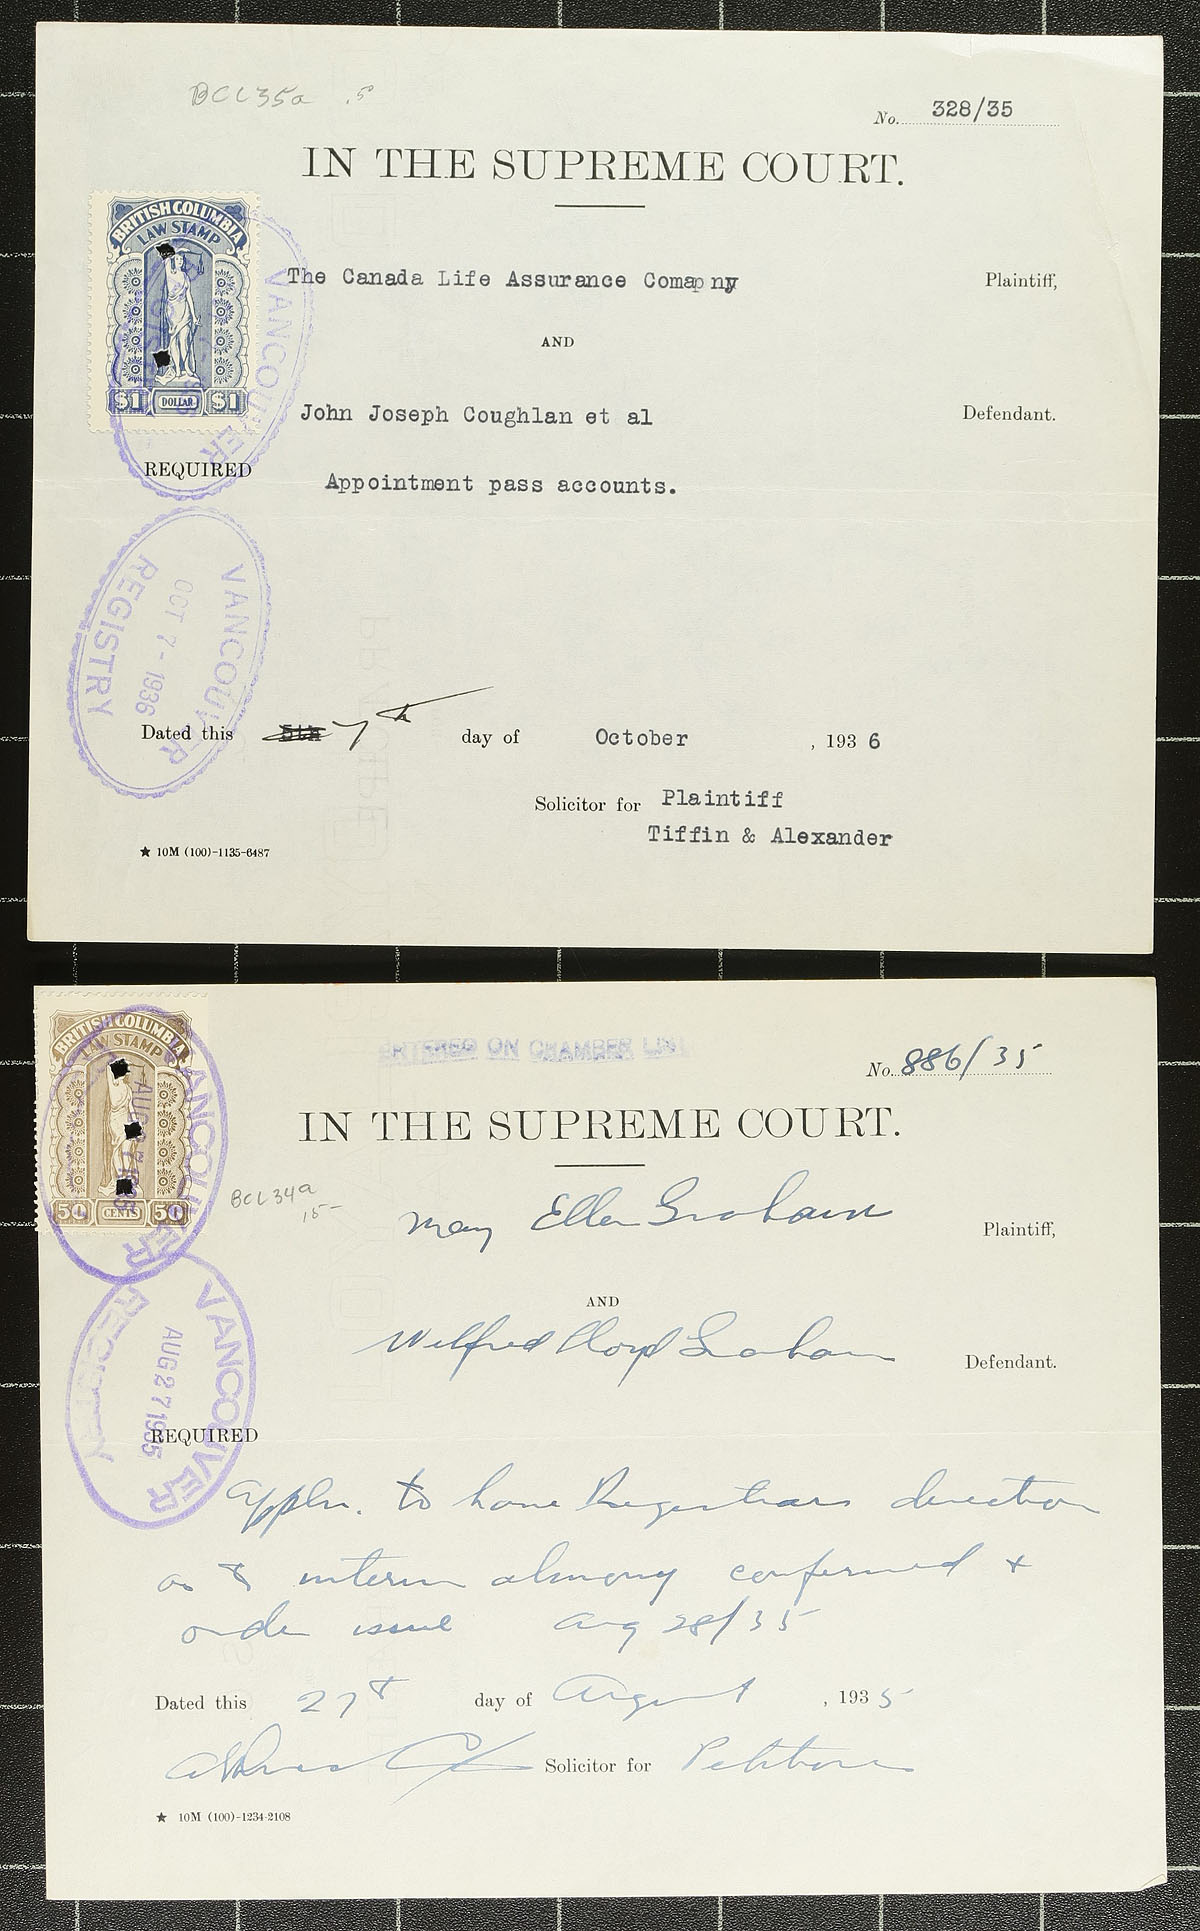 BCL35a .5
No. 328/35
IN THE SUPREME COURT.
BRITISH COLUMBIA
LAW STAMP
$1 DOLLAR $1
The Canada Life Assurance Comapny
Plaintiff,
AND
John Joseph Coughlan et al
Defendant.
VANCOUVER
REQUIRED
Appointment pass accounts.
VANCOUVER
OCT 7 - 1936
REGISTRY
Dated this 5th 7th day of October , 1936
Solicitor for Plaintiff
Tiffin & Alexander
★ 10M (100)-1135-6487
ENTERED ON CHAMBER LIST
No. 886/35
IN THE SUPREME COURT.
BRITISH COLUMBIA
LAW STAMP
50 CENTS 50
VANCOUVER
BCL34a
15-
May Ellen Graham
Plaintiff,
AND
Wilfred Lloyd Graham
Defendant.
VANCOUVER
AUG 27 1935
REGISTRY
REQUIRED
Appln. to have Registrars direction
as to interim alimony confirmed +
order issue Aug 28/35
Dated this 27th day of August , 1935
Solicitor for Petitioner
★ 10M (100)-1234-2108